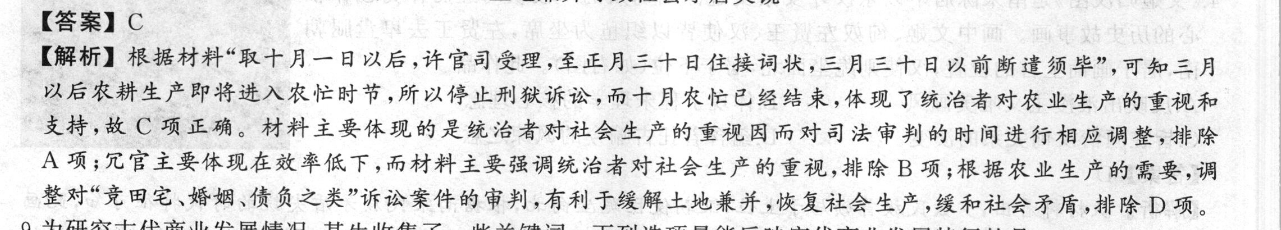 【答案】C
【解析】根据材料“取十月一日以后,许官司受理,至正月三十日住接词状,三月三十日以前断遣须毕”,可知三月
以后农耕生产即将进入农忙时节,所以停止刑狱诉讼,而十月农忙已经结束,体现了统治者对农业生产的重视和
支持,故 C 项正确。材料主要体现的是统治者对社会生产的重视因而对司法审判的时间进行相应调整,排除
A 项;冗官主要体现在效率低下,而材料主要强调统治者对社会生产的重视,排除 B 项;根据农业生产的需要,调
整对“竞田宅、婚姻、债负之类”诉讼案件的审判,有利于缓解土地兼并,恢复社会生产,缓和社会矛盾,排除 D 项。